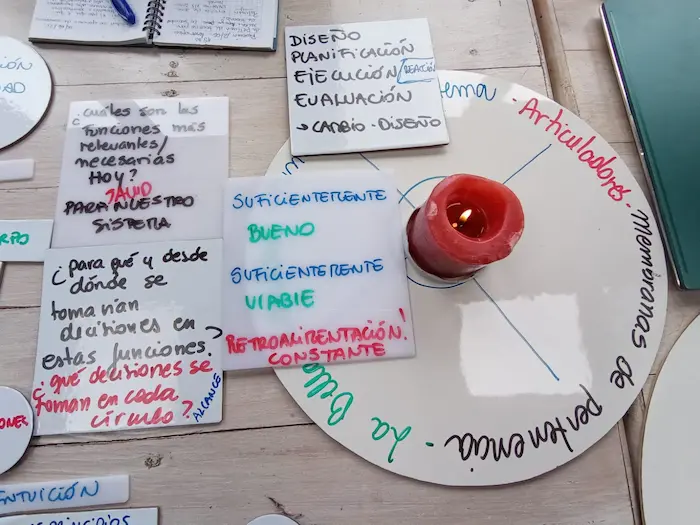 DISEÑO
PLANIFICACIÓN
EJECUCIÓN REACCIÓN
EVALUACIÓN
→ CAMBIO - DISEÑO
¿cuáles son las
funciones más
relevantes/
necesarias
Hoy?
SALUD
PARA NUESTRO
SISTEMA
¿para qué y desde
dónde se
tomarían
decisiones en
estas funciones?
¿qué decisiones se
toman en cada
círculo?
ALCANCE
SUFICIENTEMENTE
BUENO
SUFICIENTEMENTE
VIABLE
RETROALIMENTACIÓN!
CONSTANTE
- Articuladores - Membranas de pertenencia - La
INTUICIÓN